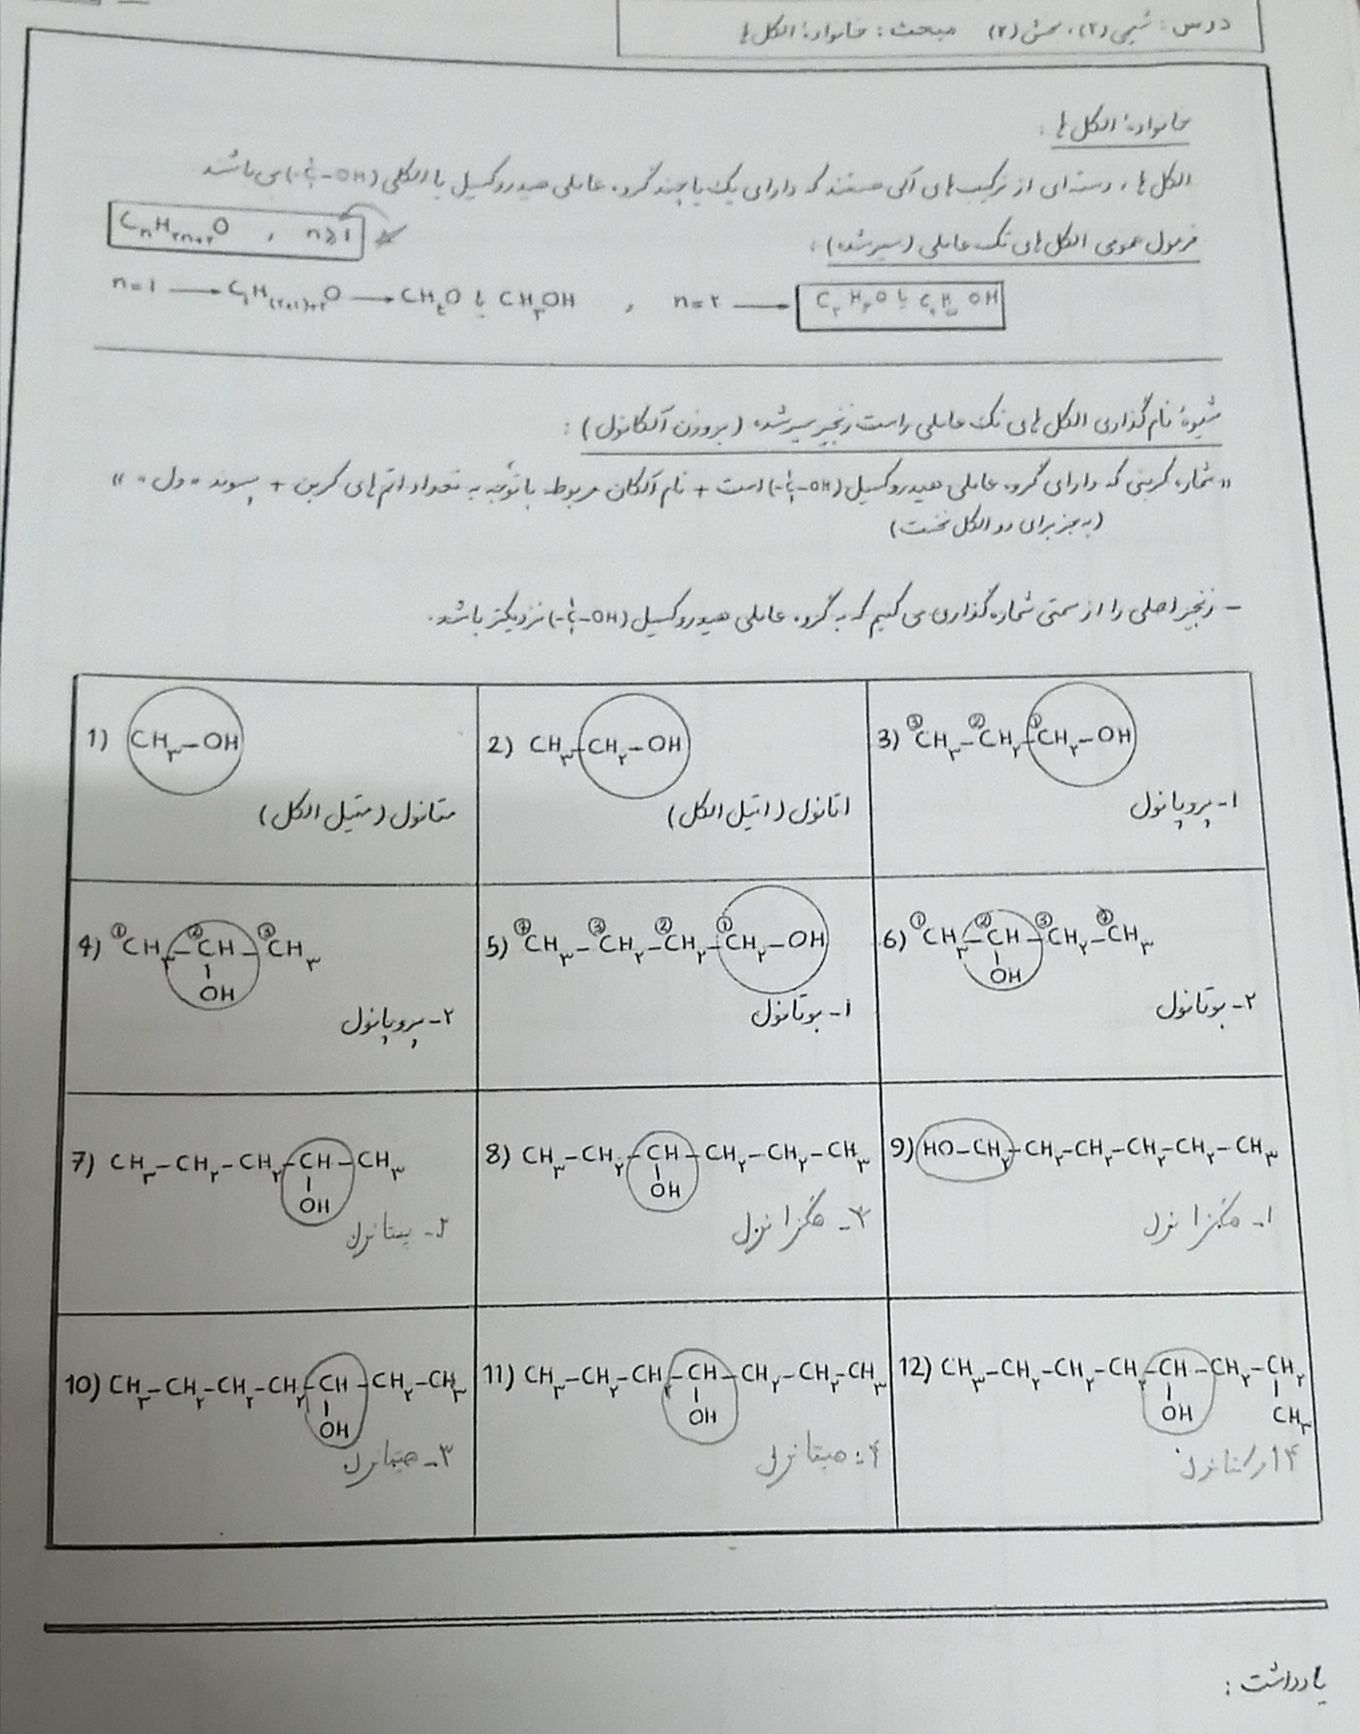 درس: شیمی (۲)، بخش (۲) مبحث: خانوادهٔ الکل ها
خانوادهٔ الکل ها:
الکل ها، دسته ای از ترکیب های آلی هستند که دارای یک یا چند گروه عاملی هیدروکسیل یا الکلی (-C-OH) می باشند
فرمول عمومی الکل های تک عاملی (سیر شده):
CnH۲n+۲O , n≥1
n=۱ → C۱H(۲×۱)+۲O → CH۴O یا CH۳OH , n=۲ → C۲H۶O یا C۲H۵OH
شیوهٔ نام گذاری الکل های تک عاملی راست زنجیر سیر شده (بر وزن آلکانول):
«شماره کربنی که دارای گروه عاملی هیدروکسیل (-C-OH) است + نام آلکان مربوطه با توجه به تعداد اتم های کربن + پسوند «ول»»
(به جز برای دو الکل نخست)
- زنجیر اصلی را از سمتی شماره گذاری می کنیم که به گروه عاملی هیدروکسیل (-C-OH) نزدیکتر باشد.
1) CH۳-OH
متانول (متیل الکل)
2) CH۳-CH۲-OH
اتانول (اتیل الکل)
3) ③CH۳-②CH۲-①CH۲-OH
۱- پروپانول
4) ①CH۳-②CH-③CH۳
OH
۲- پروپانول
5) ④CH۳-③CH۲-②CH۲-①CH۲-OH
۱- بوتانول
6) ①CH۳-②CH-③CH۲-④CH۳
OH
۲- بوتانول
7) CH۳-CH۲-CH۲-CH-CH۳
OH
۲- پنتانول
8) CH۳-CH۲-CH-CH۲-CH۲-CH۳
OH
۳- هگزانول
9) HO-CH۲-CH۲-CH۲-CH۲-CH۲-CH۳
۱- هگزانول
10) CH۳-CH۲-CH۲-CH۲-CH-CH۲-CH۳
OH
۳- هپتانول
11) CH۳-CH۲-CH۲-CH-CH۲-CH۲-CH۳
OH
۴- هپتانول
12) CH۳-CH۲-CH۲-CH۲-CH-CH۲-CH۲
OH
CH۳
۴ اوکتانول
یادداشت: